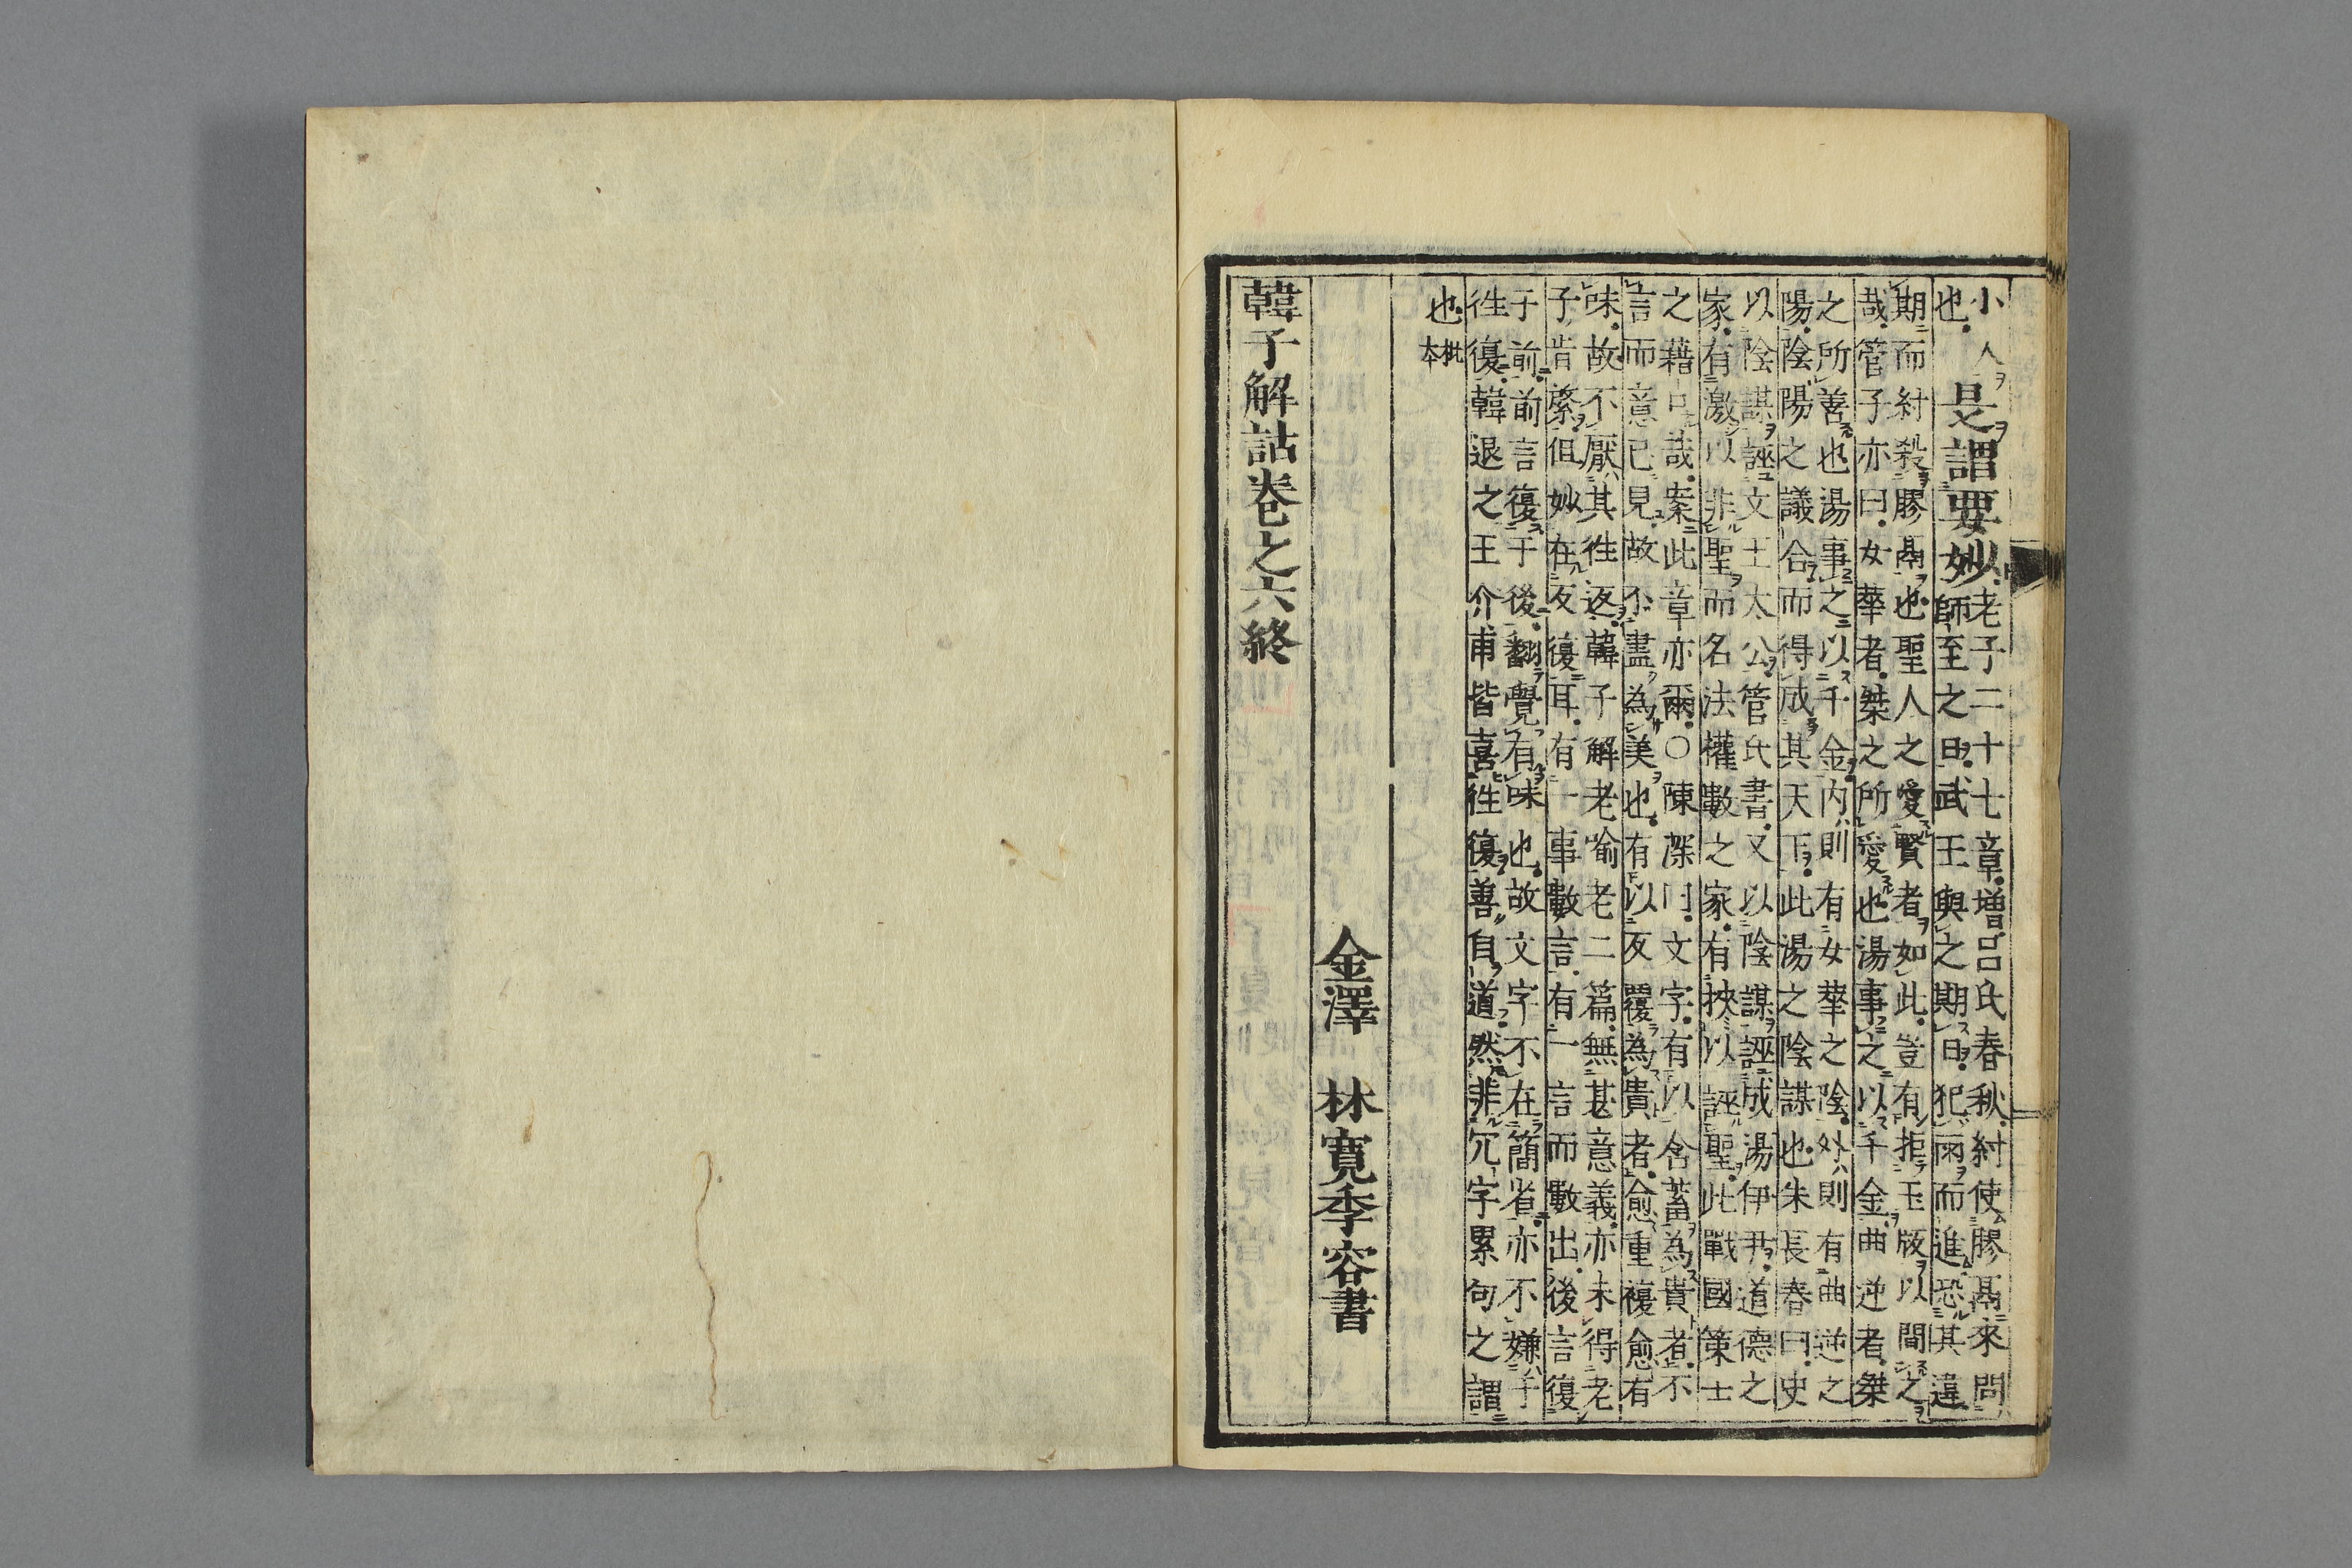 小人也
是謂要妙
老子二十七章增呂氏春秋紂使膠鬲來問
師至之日武王與之期日犯雨而進恐其違
期而紂殺膠鬲也聖人之愛賢者如此豈有拒玉版以間之
哉管子亦曰女華者桀之所愛也湯事之以千金曲逆者桀
之所善也湯事之以千金內則有女華之陰外則有曲逆之
陽陰陽之議合而得成其天下此湯之陰謀也朱長春曰史
以陰謀誣文王太公管氏書又以陰謀誣成湯伊尹道德之
家有激以非聖而名法權數之家有挾以誣聖此戰國策士
之藉口哉案此章亦爾○陳深曰文字有以含蓄為貴者不
言而意已見故不盡為美也有以反覆為貴者愈重複愈有
味故不厭其徃返韓子解老喻老二篇無甚意義亦未得老
子肯綮但妙在反復耳有一事數言有一言而數出後言復
于前前言復于後翻覺有味也故文字不在簡省亦不嫌于
徃復韓退之王介甫皆喜徃復善自道然非冗字累句之謂
也批本
金澤　林寬季容書
韓子解詁卷之六終